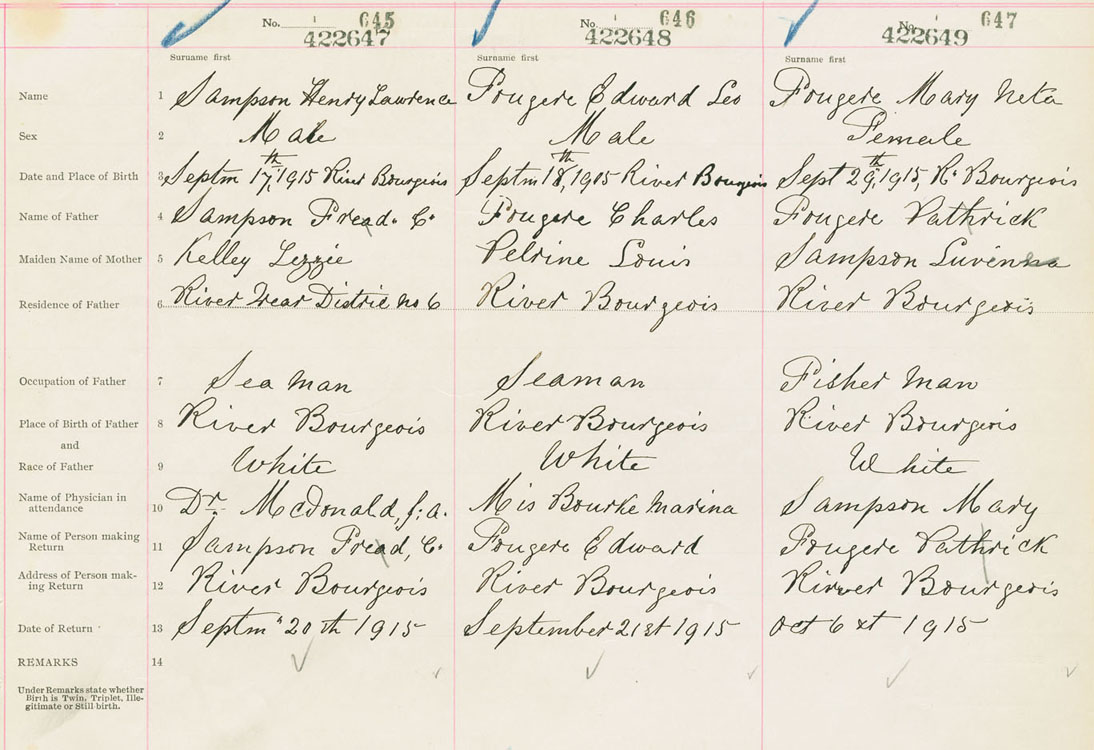 No. 1 645 No. 1 646 No. 1 647
422647 422648 422649
Surname first Surname first Surname first
Name 1 Sampson Henry Lawrence Fougere Edward Leo Fougere Mary Neta
Sex 2 Male Male Female
Date and Place of Birth 3 Septm 17th, 1915 River Bourgeois Septm 18th, 1915 River Bourgeois Sept 29th, 1915, R. Bourgeois
Name of Father 4 Sampson Fread. C. Fougere Charles Fougere Pathrick
Maiden Name of Mother 5 Kelley Lezzie Pelrine Louis Sampson Luvenia
Residence of Father 6 River Distric no 6 River Bourgeois River Bourgeois
Occupation of Father 7 Sea man Seaman Fisher man
Place of Birth of Father 8 River Bourgeois River Bourgeois River Bourgeois
and
Race of Father 9 White White White
Name of Physician in
attendance 10 Dr. McDonald, j. a. Mis Bourke marina Sampson Mary
Name of Person making
Return 11 Sampson Fread, C. Fougere Edward Fougere Pathrick
Address of Person mak-
ing Return 12 River Bourgeois River Bourgeois River Bourgeois
Date of Return 13 Septm 20th 1915 September 21st 1915 Oct 6 xt 1915
REMARKS 14
Under Remarks state whether
Birth is Twin, Triplet, Ille-
gitimate or Still-birth.